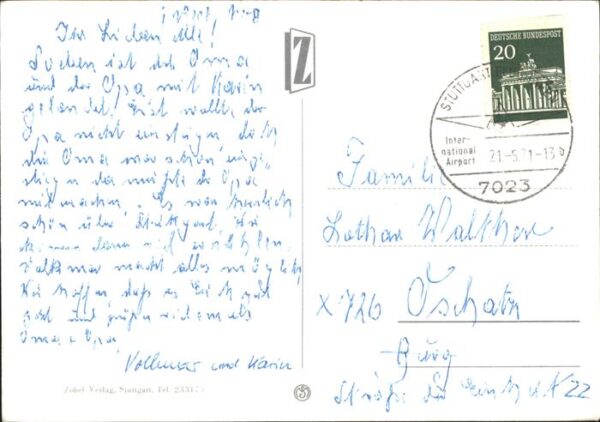 Ihr Lieben Alle!
Soeben ist die Oma
und der Opa mit Karin
gelandet! Erst wollte der
Opa nicht einsteigen doch
die Oma war schon einge-
stiegen da mußte der Opa
mitmachen. Es war herrlich
schön über Stuttgart, wir
können dann viel erzählen.
Volkmar macht alles möglich
Wir hoffen, daß es Euch gut
geht und grüßen
Oma + Opa
Volkmar und Karin
Zobel-Verlag, Stuttgart, Tel.
Z
DEUTSCHE BUNDESPOST
20
STUTTGART
Inter-
national
Airport
21-5.71-13
7023
Familie
Lothar Walther
X 726 Oschatz
Burg
Straße der Einheit 22